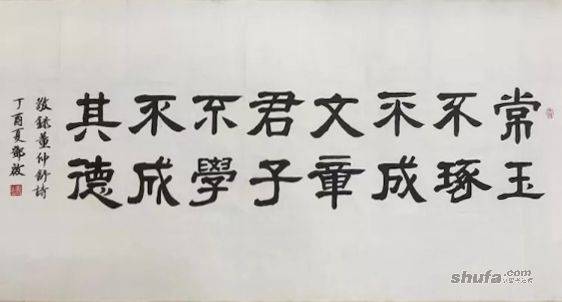 常玉
不琢
不成
文章
君子
不學
不成
其德
敬錄董仲舒詩
丁酉夏鄧
shufa.com